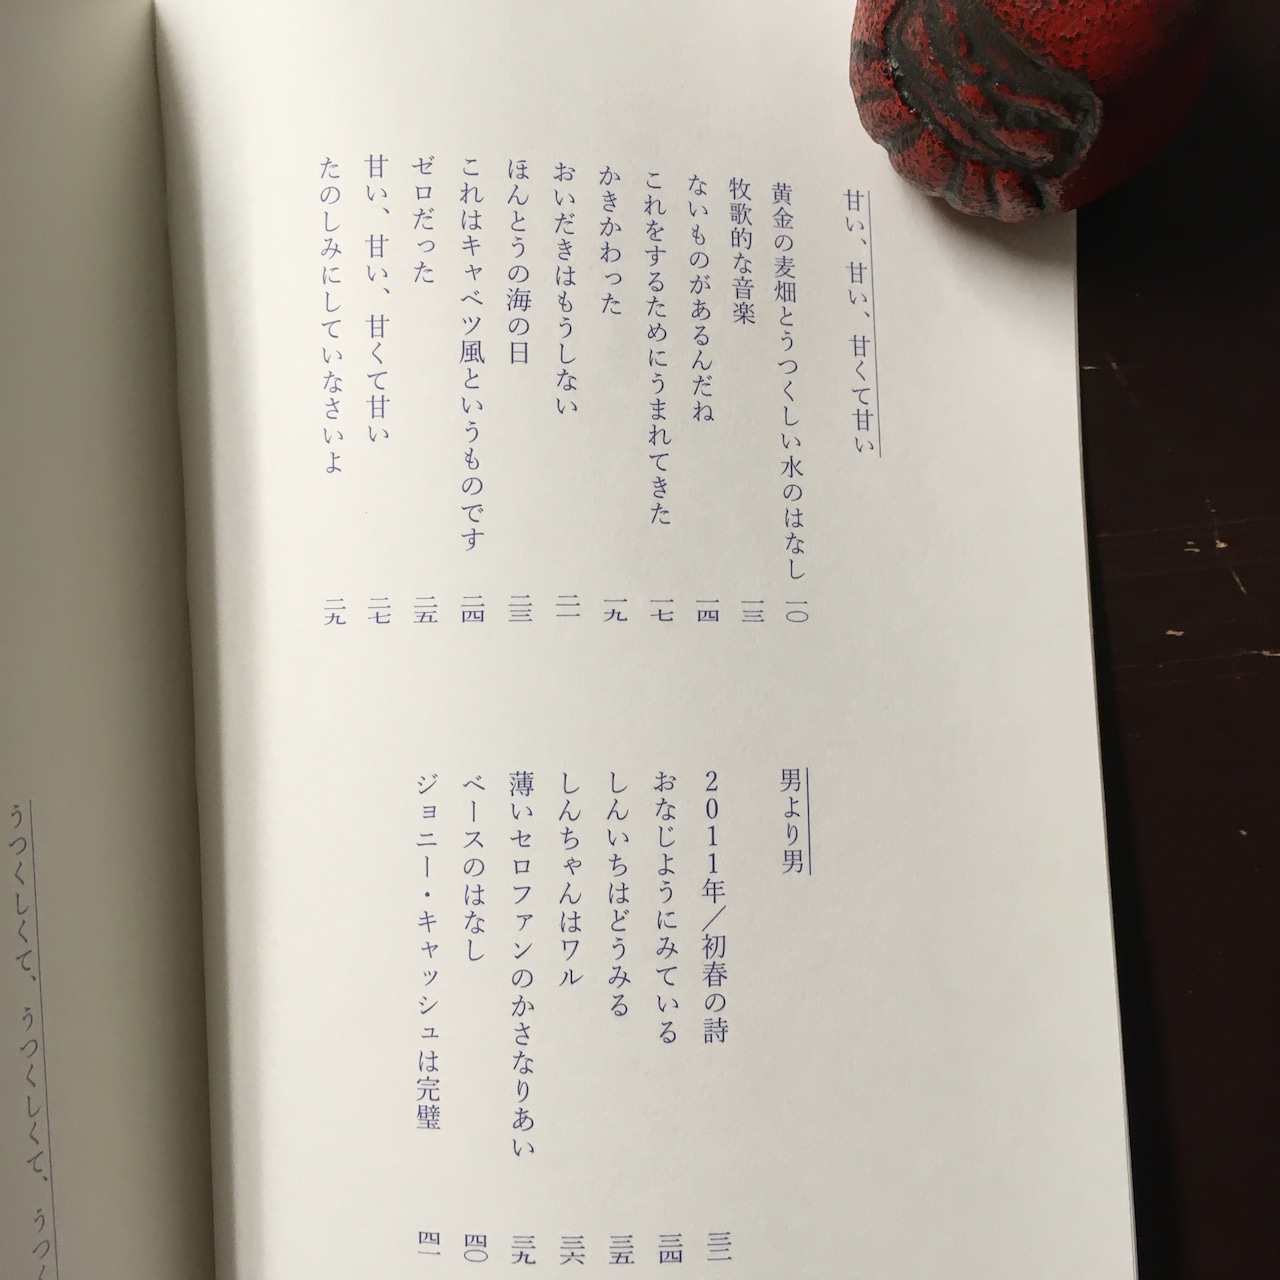 甘い、甘い、甘くて甘い
黄金の麦畑とうつくしい水のはなし 一〇
牧歌的な音楽 一三
ないものがあるんだね 一四
これをするためにうまれてきた 一七
かきかわった 一九
おいだきはもうしない 二一
ほんとうの海の日 二三
これはキャベツ風というものです 二四
ゼロだった 二五
甘い、甘い、甘くて甘い 二七
たのしみにしていなさいよ 二九
男より男
2011年／初春の詩 三二
おなじようにみている 三四
しんいちはどうみる 三五
しんちゃんはワル 三六
薄いセロファンのかさなりあい 三九
ベースのはなし 四〇
ジョニー・キャッシュは完璧 四一
うつくしくて、うつくしくて、うつ